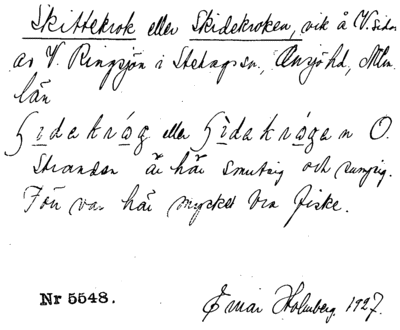 Skittekrok eller Skidekroken, vik å V. Sidan
av V. Ringsjön i Stehagssn, Onsjöhd, Mlm.
län
ʃidakrɷg eller ʃidakrɷgen O.
Stranden är här smutsig och sumpig.
Förr var här mycket bra fiske.
Nr 5548. Einar Holmberg 1927.